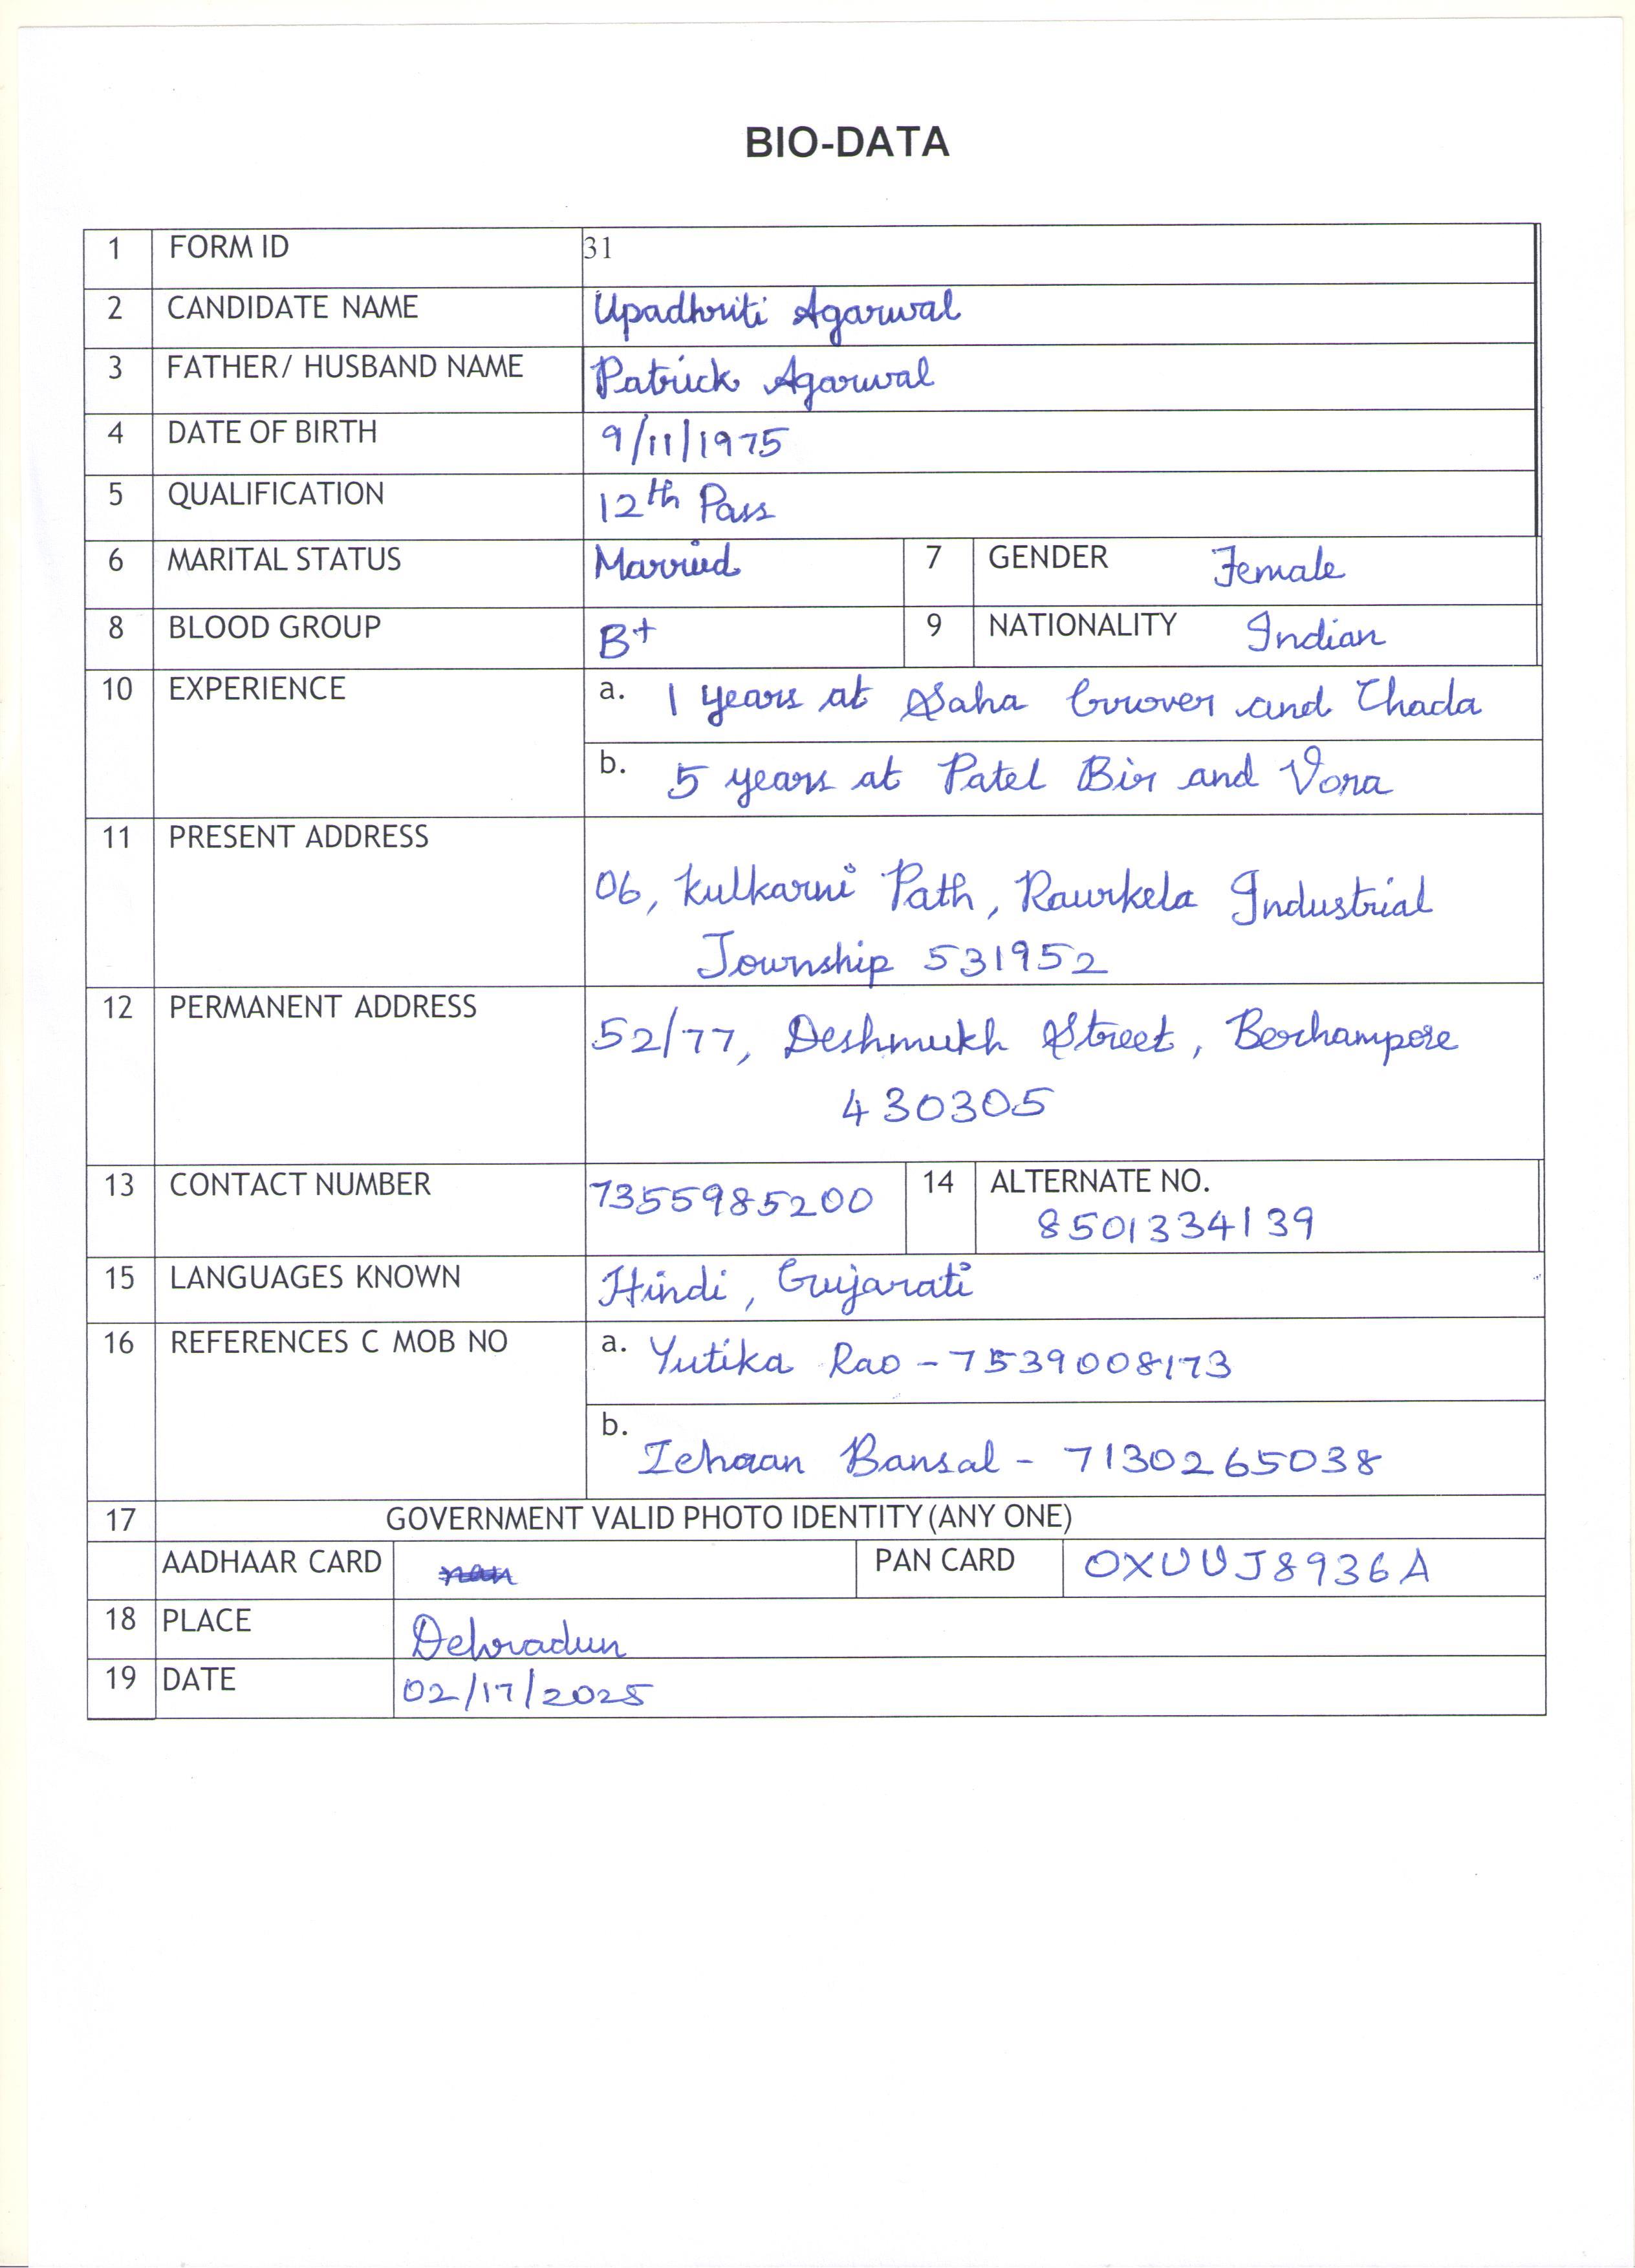 BIO-DATA
1 FORM ID 31
2 CANDIDATE NAME Upadhriti Agarwal
3 FATHER/ HUSBAND NAME Patrick Agarwal
4 DATE OF BIRTH 9/11/1975
5 QUALIFICATION 12th Pass
6 MARITAL STATUS Married 7 GENDER Female
8 BLOOD GROUP B+ 9 NATIONALITY Indian
10 EXPERIENCE a. 1 years at Saha Grover and Chada
b. 5 years at Patel Bir and Vora
11 PRESENT ADDRESS
06, Kulkarni Path, Raurkela Industrial
Township 531952
12 PERMANENT ADDRESS
52/77, Deshmukh Street, Berhampore
430305
13 CONTACT NUMBER 7355985200 14 ALTERNATE NO.
8501334139
15 LANGUAGES KNOWN Hindi, Gujarati
16 REFERENCES C MOB NO a. Yutika Rao - 7539008173
b. Zehaan Bansal - 7130265038
17 GOVERNMENT VALID PHOTO IDENTITY (ANY ONE)
AADHAAR CARD nan PAN CARD OXUUJ8936A
18 PLACE Dehradun
19 DATE 02/17/2025